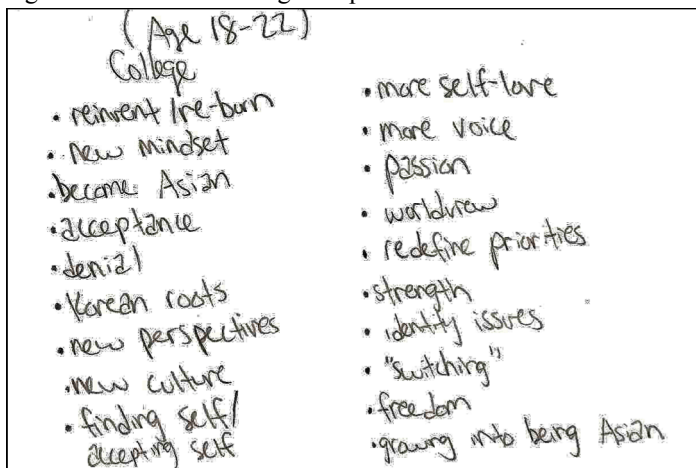 (Age 18-22)
College
• reinvent/re-born
• new mindset
• become Asian
• acceptance
• denial
• Korean roots
• new perspectives
• new culture
• finding self/
accepting self
• more self-love
• more voice
• passion
• worldview
• redefine priorities
• strength
• identity issues
• "switching"
• freedom
• growing into being Asian